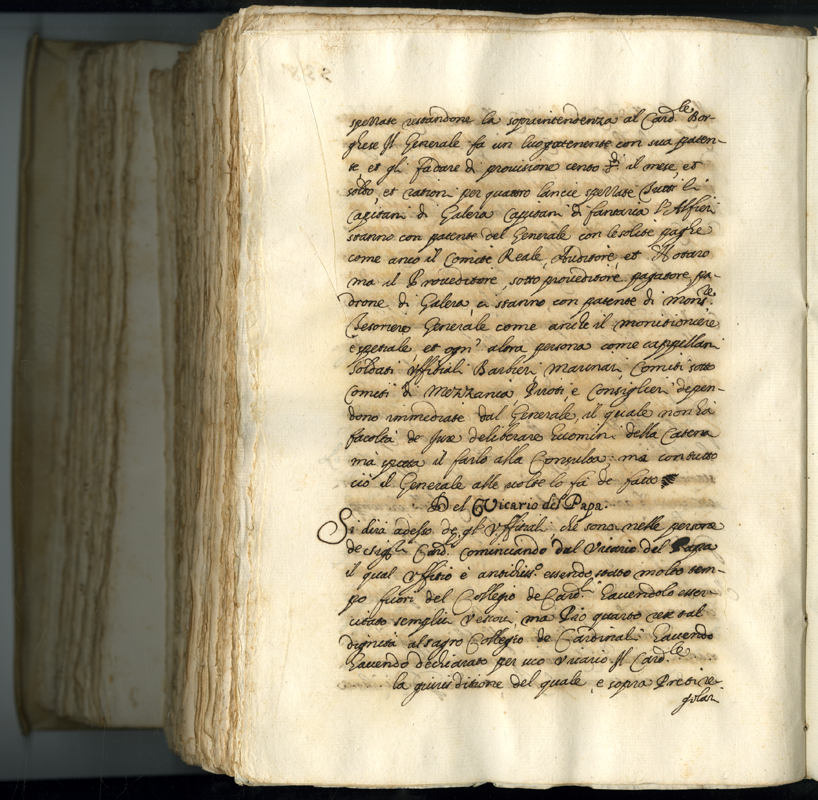 spezzate restandone la soprintendenza al Card.le Bor-
ghese Il Generale fa un luogotenente con sua paten-
te, et gli fa dare di provisione cento il mese, et
soldo, et rationi per quattro lancie spezzate Tutti li
Capitani di Galera Capitani di fantaria l'Alfieri
stanno con patente del Generale con le solite paghe
come anco il Comite Reale, Auditore et Notaro
ma il Proveditore, sotto proveditore, pagatore, pa-
drone di Galera, stanno con patente di mons.re
Tesoriero Generale come anche il monitioniere
e spetiale, et ogn' altra persona come cappellani
soldati, Uffitiali Barbieri, marinari, Comiti sotto
Comiti di Mezzania, Piloti, e Consiglieri depen-
dono immediate dal Generale, il quale non ha
facoltà de Jure deliberare huomini della Catena
ma spetta il farlo alla Consulta: ma contutto
ciò il Generale alle volte lo fà de fatto
Del Vicario del Papa.
Si dirà adesso de gl' Uffitiali, che sono nelle persone
de sig.ri Card.li cominciando dal Vicario del Papa
il qual Uffitio è antichiss.o essendo stato molto tem-
po fuori del Collegio de Card.li havendolo esser-
citato semplici Vescovi, ma Pio quarto rese tal
dignità al sagro Collegio de Cardinali havendo
havendo dechiarato per suo Vicario Il Card.le
la giurisditione del quale, e sopra Preti re-
golari